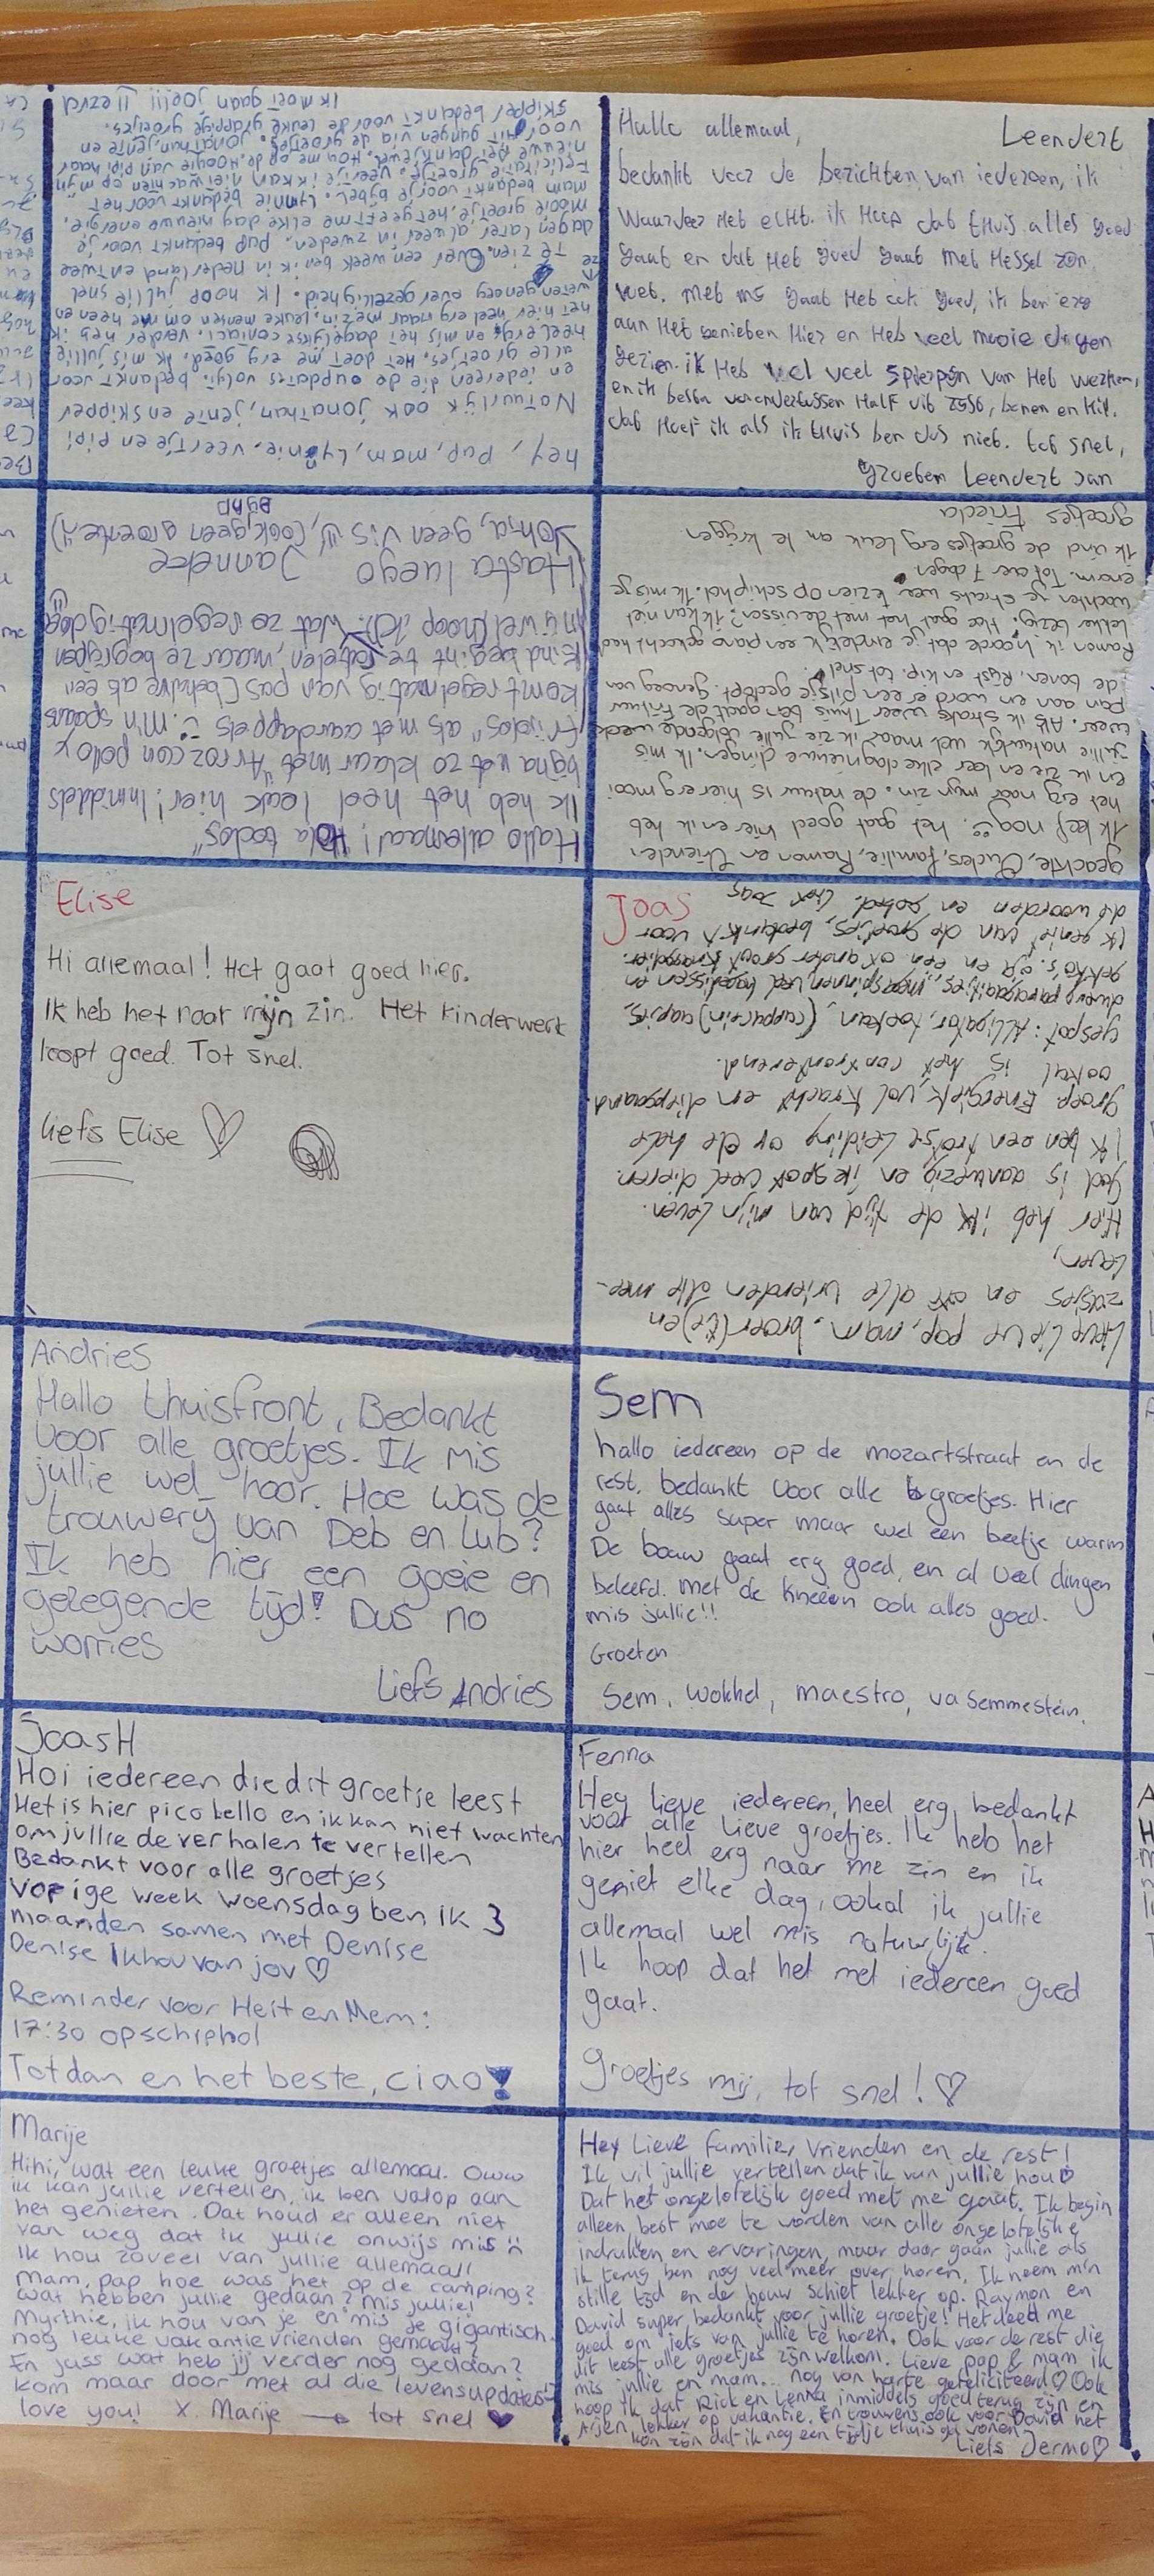 Hallo allemaal, Leendert
bedankt voor de berichten van iedereen, ik
waardeer het echt. ik hoop dat thuis alles goed
gaat en dat het goed gaat met Hessel zon
voet. met mij gaat het ook goed, ik ben erg
aan het genieten hier en heb veel mooie dingen
gezien. ik heb wel veel spierpijn van het werken,
en ik besta voor half uit rijst, bonen en kip.
dat hoef ik als ik thuis ben dus niet. tot snel,
groeten Leendert Jan
hey, pup, mam, Lynnie, veertje en pipi
Natuurlijk ook jonathan, jente en skipper
en iedereen die de oupdates volgt. bedankt voor
alle groetjes. Het doet me erg goed. ik mis jullie
heel erg en mis het dagelijkse contact. verder heb ik
het hier heel erg naar me zin, leuke mensen om me heen en
weten genoeg over gezelligheid. Ik hoop jullie snel
te zien. Over een week ben ik in nederland en twee
dagen later alweer in zweden. pup bedankt voor je
mooie groetje, het geeft me elke dag nieuwe energie.
mam bedankt voor je bijbel. Lynnie bedankt voor het
felicitatie groetje. veertje ik kan niet wachten op mijn
nieuwe bed dankjewel. Hou me op de hoogte van pipi haar
vooruitgangen via de groetjes. Jonathan, jente en
skipper bedankt voor de leuke grappige groetjes.
ik moet gaan joeiii II ezra
Hallo allemaal! "Hola todos"
Ik heb het heel leuk hier! Inmiddels
bijna net zo klaar met "Arroz con pollo y
frijoles" als met aardappels. M'n spaans
komt regelmatig van pas (behalve als een
kind begint te ratelen, maar ze begrijpen
mij wel (hoop ik). Wat zo regelmatig door
Hasta luego Janneke
Johja, geen vis, (ook bijna geen groente)
geachte, Ouders, familie, Ramon en Vrienden
Ik leef nog. het gaat goed hier en ik heb
het erg naar mijn zin. de natuur is hier erg mooi
en ik zie en leer elke dag nieuwe dingen. Ik mis
jullie natuurlijk wel maar ik zie jullie volgende week
weer. Als ik straks weer thuis ben gaat de frituur
pan aan en word er een pilsje gedopt. genoeg van
de bonen, Rijst en kip. tot snel!
Ramon ik hoorde dat je eindelijk een piano gekocht hebt
lekker bezig. Hoe gaat het met de vissen? Ik kan niet
wachten je straks weer te zien op schiphol. Ik mis je
enorm. Tot over 7 dagen
Ik vind de groetjes erg leuk om te krijgen
groetjes Frieda
Elise
Hi allemaal! Het gaat goed hier.
Ik heb het naar mijn zin. Het kinderwerk
loopt goed. Tot snel.
liefs Elise
Lieve lieve pap, mam, broer(tje) en
zusjes en alle vrienden die mee-
lezen,
Hier heb ik de tijd van mijn leven.
God is aanwezig en ik spot veel dieren.
Ik ben een trotse leiding op de hele
groep. Energiek, vol kracht en diepgaand
ookal is het confronterend.
gespot: Alligator, toekan, (cappucein)aapjes,
dwerg papagaaitjes, megaspinnen, veel hagedissen en
gekko's. en een of ander groot knaagdier.
Ik geniet van de groetjes, bedankt voor
de woorden en gebed. Liefs Joas
Joas
Andries
Hallo thuisfront, Bedankt
voor alle groetjes. Ik mis
jullie wel hoor. Hoe was de
trouwerij van Deb en Lub?
Ik heb hier een goeie en
gezegende tijd! Dus no
worries
Liefs Andries
Sem
hallo iedereen op de mozartstraat en de
rest. bedankt voor alle groetjes. Hier
gaat alles super maar wel een beetje warm
De bouw gaat erg goed, en al veel dingen
beleefd. met de knieën ook alles goed.
mis jullie!!
Groeten
Sem, wokkel, maestro, va Semmestein.
JoasH
Hoi iedereen die dit groetje leest
Het is hier pico bello en ik kan niet wachten
om jullie de verhalen te vertellen
Bedankt voor alle groetjes
Vorige week woensdag ben ik 3
maanden samen met Denise
Denise ik hou van jou ♡
Reminder voor Heit en Mem:
17:30 op schiphol
Tot dan en het beste, ciao!
Fenna
Hey lieve iedereen, heel erg bedankt
voor alle lieve groetjes. Ik heb het
hier heel erg naar me zin en ik
geniet elke dag, ookal ik jullie
allemaal wel mis natuurlijk.
Ik hoop dat het met iedereen goed
gaat.
groetjes mij, tot snel! ♡
Marije
Hihi, wat een leuke groetjes allemaal. Oww
ik kan jullie vertellen, ik ben volop aan
het genieten. Dat houd er alleen niet
van weg dat ik jullie onwijs mis
Ik hou zoveel van jullie allemaal!
Mam, pap hoe was het op de camping?
wat hebben jullie gedaan? mis jullie!
Myrthie, ik hou van je en mis je gigantisch.
nog leuke vakantievrienden gemaakt?
En juss wat heb jij verder nog gedaan?
kom maar door met al die levensupdates!?
love you! X. Marije → tot snel ♥
Hey Lieve familie, vrienden en de rest!
Ik wil jullie vertellen dat ik van jullie hou♡
Dat het ongelofelijk goed met me gaat. Ik begin
alleen best moe te worden van alle ongelofelijke
indrukken en ervaringen, maar daar gaan jullie als
ik terug ben nog veel meer over horen. Ik neem m'n
stille tijd en de bouw schiet lekker op. Raymon en
David super bedankt voor jullie groetje! Het deed me
goed om iets van jullie te horen. Ook voor de rest die
dit leest alle groetjes zijn welkom. Lieve pap & mam ik
mis jullie en mam... nog van harte gefeliciteerd♡ Ook
hoop ik dat Rick en Lenna inmiddels goed terug zijn en
Arjen lekker op vakantie. En trouwens ook voor David het
kan zijn dat ik nog een tijdje thuis ga wonen
Liefs Jermo♡